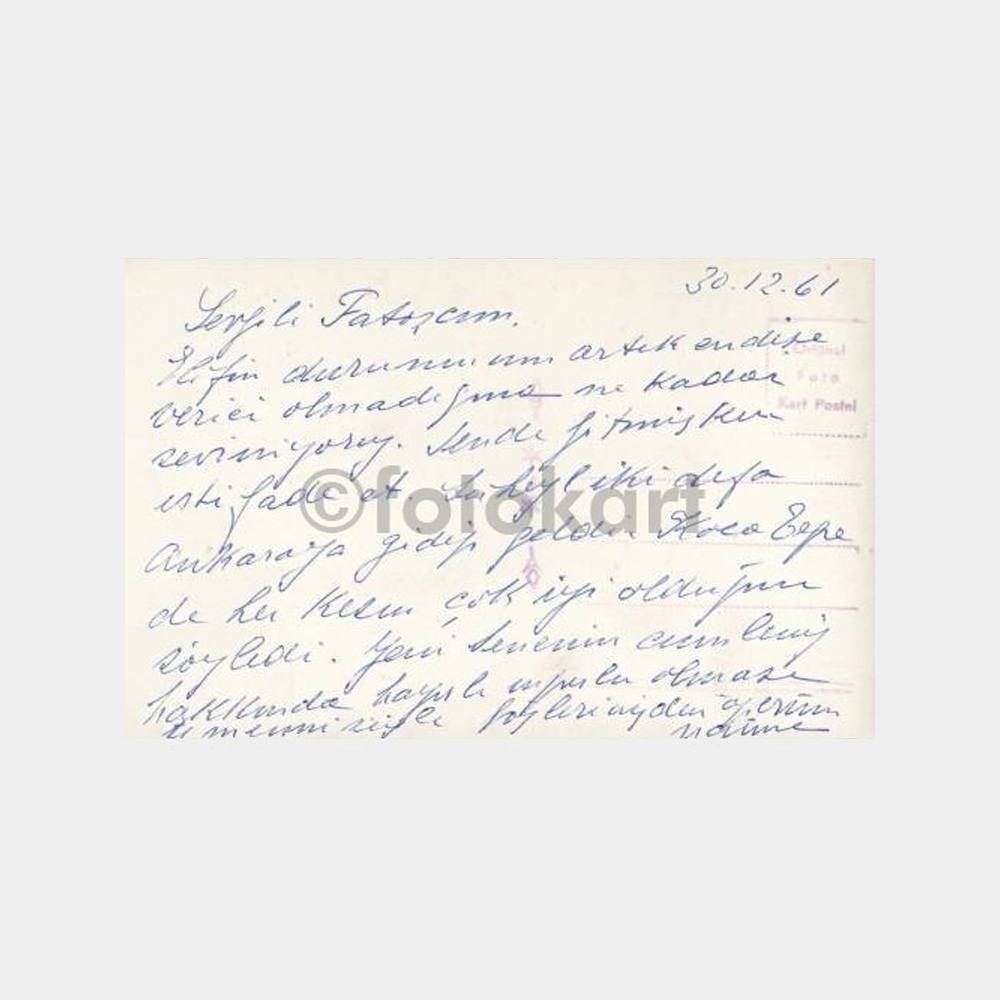 30.12.61
Sevgili Fatoşcum,
Elifin durumunun artık endişe
verici olmadığına ne kadar
seviniyoruz. Sende gitmişken
istifade et. iki defa
Ankaraya gidip geldim Koca Tepe
de her kesin çok iyi olduğunu
söyledi. Yeni senenin cümleniz
hakkında hayırlı uğurlu olması
temennisiyle gözlerinizden öperim
Original
Foto
Kart Postal
©fotokart